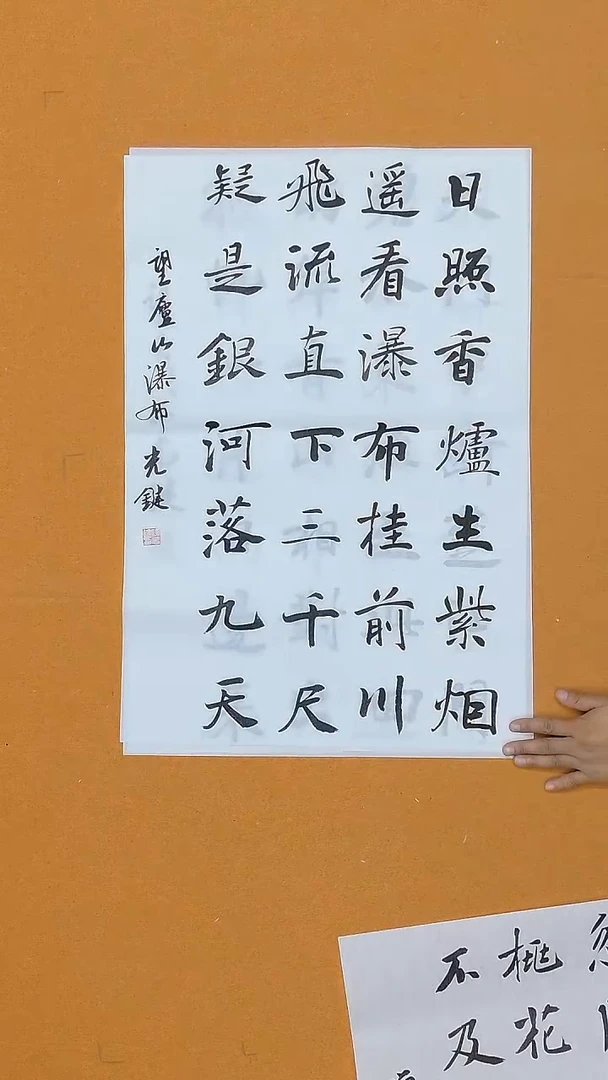 日照香爐生紫烟
遥看瀑布桂前川
飛流直下三千尺
疑是銀河落九天
望廬山瀑布 光鍵
桃花
不及